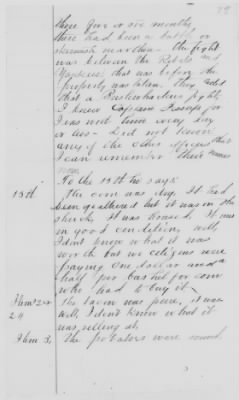 there five or six months
there had been a battle or
skirmish near there - the fight
was between the Rebels and
Yankees that was before the
property was taken. They called
that a Bushwhackers fight
I knew Captain
I was with him every day
or two - Did not know
any of the other officers that
I can remember their names
now
To the 15th he says
15th The corn was dry. It had
been gathered but it was in the
shuck. It was housed. It was
in good condition, well,
I don't know what it was
worth but we citizens were
paying one dollar and a
half per bushel for corn
who had to buy it -
Item 2 The bacon was pure, it was
well, I don't know what it
was selling at,
Item 3, The potatoes were sound